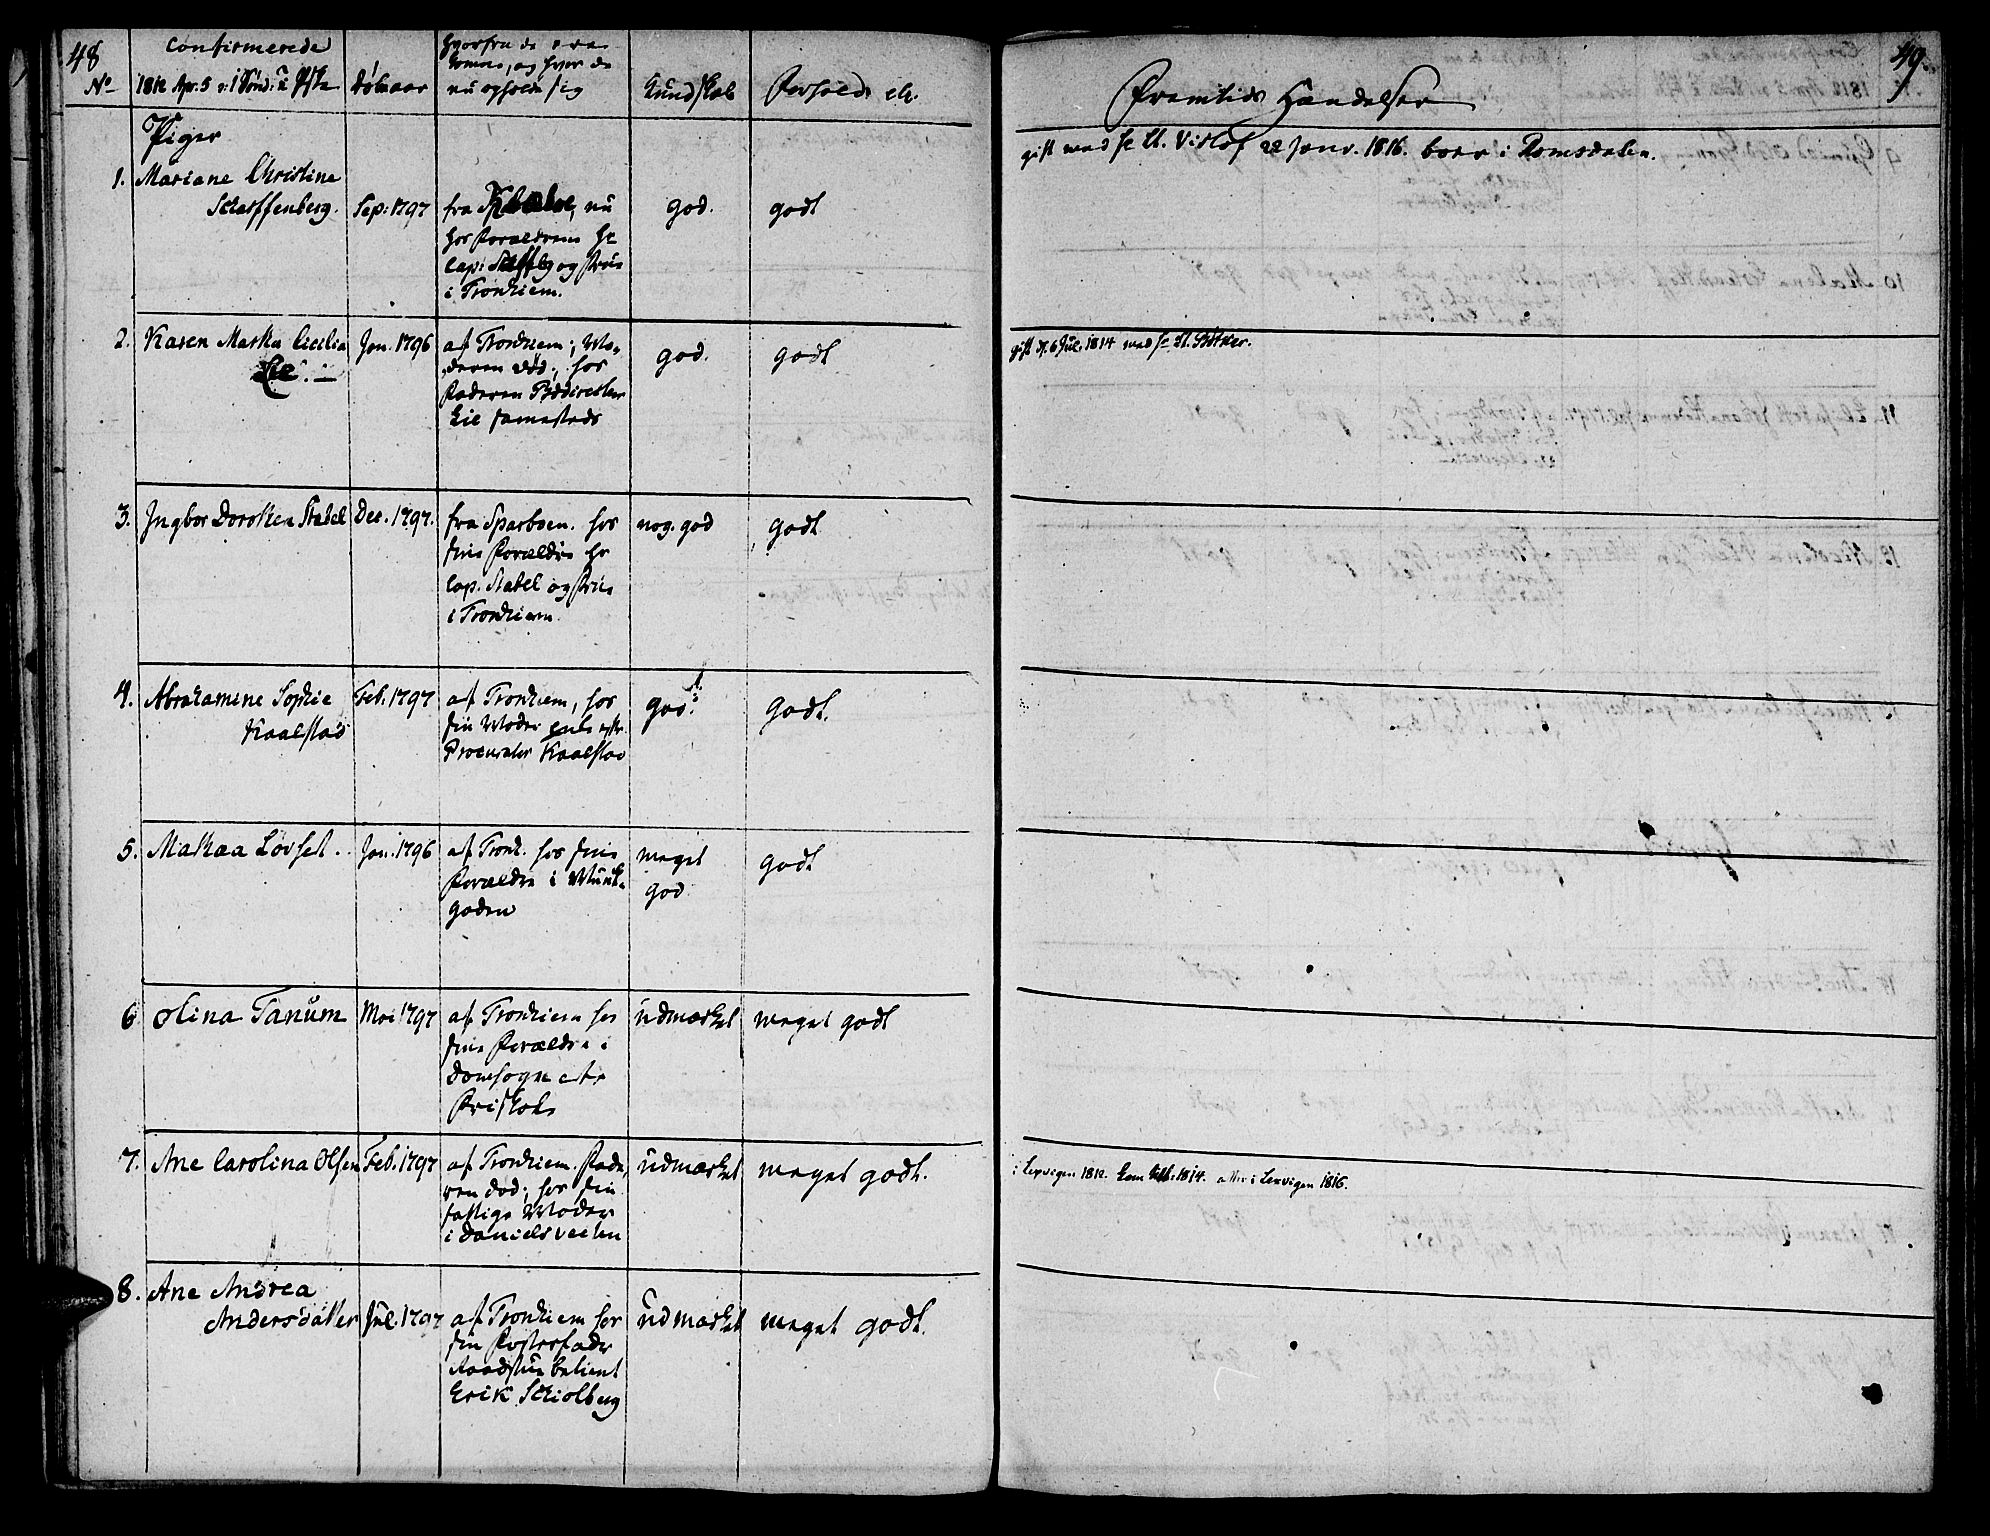 48
No
Confirmerede
1812 Apr. 5
Føbaar
hvorfra de ere
komne, og hvor de
nu opholde sig
Kundskab
Forhold
Piger
1. Mariane Christine
Scharffenberg.
Sep: 1797
fra nu
hos Forældrene
Cap: og Frue
i Tronhiem.
god.
godt
2. Karen Martha Cicilia
Lie. —
Jan. 1796
af Tronhiem; Mo-
deren død; hos
Faderen
Lie sammesteds
god.
godt
3. Ingbor Dorothea Stabel
Dec. 1797.
fra Sparboen. hos
sine Forældre Hr
Cap. Stabel og Frue
i Tronhiem
nog. god
godt
4. Abrahamine Sophie
Kaalstad
Feb. 1797
af Tronhiem, hos
sin Moder
Procurator Kaalstad
god.
godt.
5. Mathea Lovset.
Jan. 1796
af Tronh. hos sine
Forældre i Munke-
gaden
meget
god
godt
6 Olina Tanum
Mai 1797
af Tronhiem hos
sine Forældre i
Domsogne
Friskole
udmærket
meget godt
7. Ane Carolina Olsen
Feb. 1797
af Tronhiem. Fade-
ren død; hos sin
fattige Moder
i Danielsveiten
udmærket
meget godt.
8. Ane Andrea
Andersdatter
Jul. 1797
af Tronhiem hos
sin Fosterfader
Raadstubetient
Erik Schiolberg
udmærket
meget godt.
49.
Fremtids Hændelser
gift med Hr 22 Janv. 1816. boer i Romsdalen.
gift d. 6 Jul. 1814 med Hr
i Lexvigen 1812. Kom 1814. atter i Lexvigen 1816.